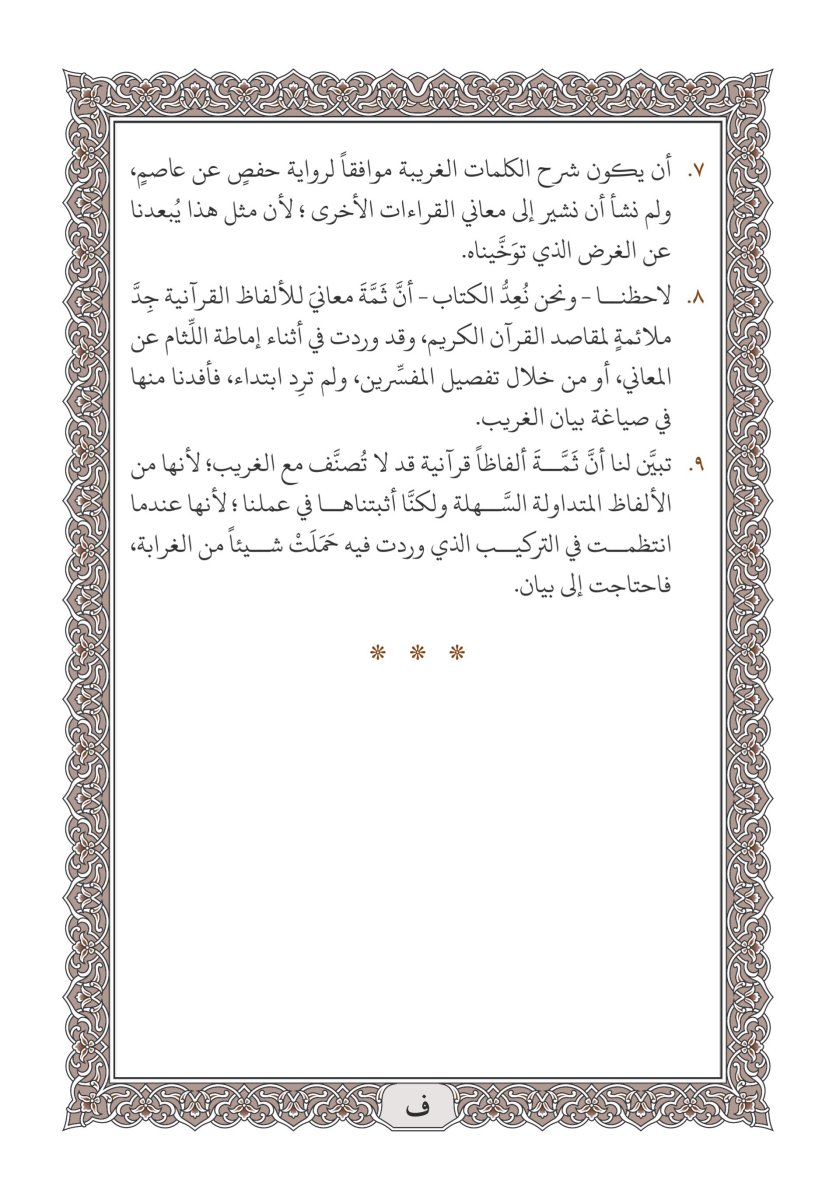 ٧. أن يكون شرح الكلمات الغريبة موافقاً لرواية حفصٍ عن عاصمٍ،
ولم نشأ أن نشير إلى معاني القراءات الأخرى ؛ لأن مثل هذا يُبعدنا
عن الغرض الذي توَخَّيناه.
٨. لاحظنـــا - ونحن نُعِدُّ الكتاب - أنَّ ثَمَّةَ معانيَ للألفاظ القرآنية جِدَّ
ملائمةٍ لمقاصد القرآن الكريم، وقد وردت في أثناء إماطة اللِّثام عن
المعاني، أو من خلال تفصيل المفسِّرين، ولم ترِد ابتداء، فأفدنا منها
في صياغة بيان الغريب.
٩. تبيَّن لنا أنَّ ثَمَّـــةَ ألفاظاً قرآنية قد لا تُصنَّف مع الغريب؛ لأنها من
الألفاظ المتداولة السَّـــهلة ولكنَّا أثبتناهـــا في عملنا ؛ لأنها عندما
انتظمـــت في التركيـــب الذي وردت فيه حَمَلَتْ شـــيئاً من الغرابة،
فاحتاجت إلى بيان.
❊ ❊ ❊
ف